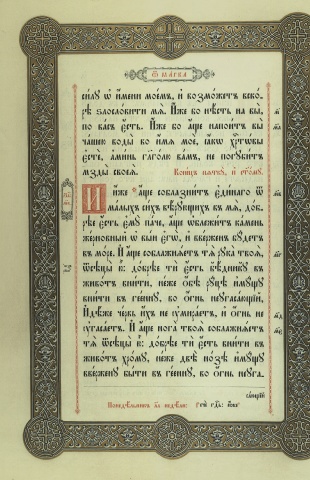 Ѿ ма́рка
си́лꙋ ѡ҆ и҆́мени мое́мъ, и҆ возмо́жетъ вско́-
рѣ ѕлосло́вити мѧ̀. И҆́же бо нѣ́сть на вы̀,
по ва́съ є҆́сть. И҆́же бо а҆́ще напои́тъ вы̀
ча́шею воды̀ во и҆́мѧ моѐ, ꙗ҆́кѡ хрⷭ҇тѡ́вы
є҆стѐ, а҆ми́нь гл҃ю ва́мъ, не погꙋби́тъ
мзды̀ своеѧ̀. Коне́цъ пѧткꙋ̀, и҆
И҆ и҆́же а҆́ще соблазни́тъ є҆ди́наго ѿ
ма́лыхъ си́хъ вѣ́рꙋющихъ въ мѧ̀, до́б-
рѣе є҆́сть є҆мꙋ̀ па́че, а҆́ще ѡ҆блежи́тъ ка́мень
же́рновный ѡ҆ вы́и є҆гѡ̀, и҆ вве́рженъ бꙋ́детъ
въ мо́ре. И҆ а҆́ще соблажнѧ́етъ тѧ̀ рꙋка̀ твоѧ̀,
ѿсѣцы̀ ю҆̀: до́брѣе тѝ є҆́сть бѣ́дникꙋ въ
живо́тъ вни́ти, не́же ѻ҆́бѣ рꙋ́цѣ и҆мꙋ́щꙋ
вни́ти въ гее́ннꙋ, во ѻ҆́гнь неꙋгаса́ющїй,
И҆дѣ́же че́рвь и҆́хъ не ᲂу҆мира́етъ, и҆ ѻ҆́гнь не
ᲂу҆гаса́етъ. И҆ а҆́ще нога̀ твоѧ̀ соблажнѧ́етъ
тѧ̀, ѿсѣцы̀ ю҆̀: до́брѣе тѝ є҆́сть вни́ти въ
живо́тъ хро́мꙋ, не́же двѣ̀ но́зѣ и҆мꙋ́щꙋ
вве́рженꙋ бы́ти въ гее́ннꙋ, во ѻ҆́гнь неꙋга-
са́ющїй
Понедѣ́льникъ